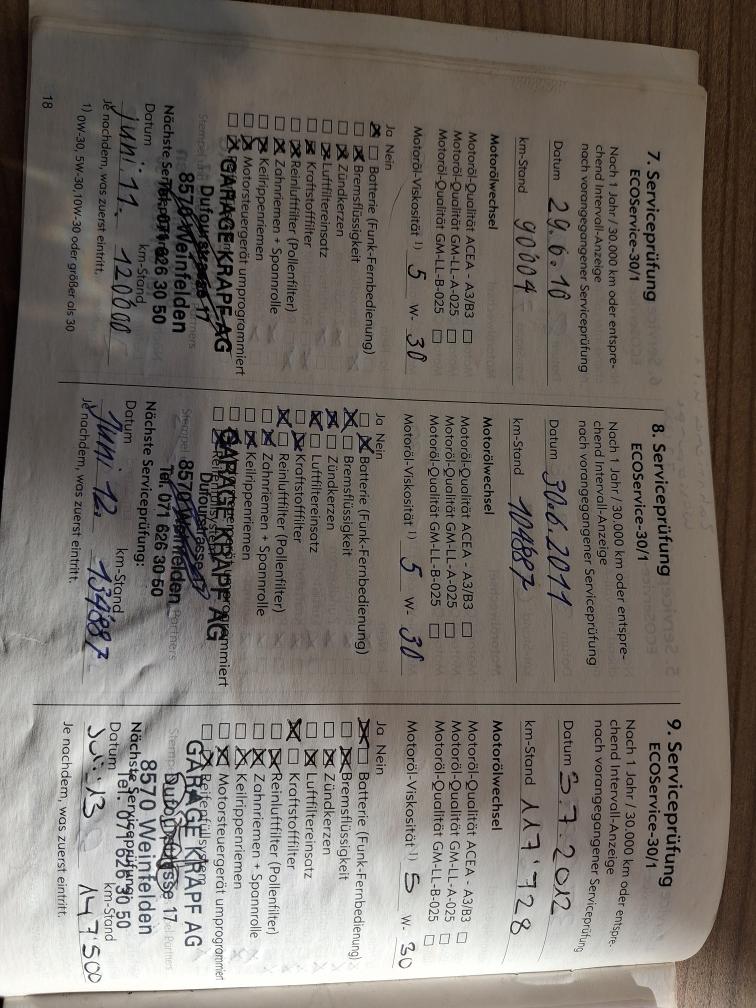 7. Serviceprüfung
ECOService-30/1
Nach 1 Jahr / 30.000 km oder entspre-
chend Intervall-Anzeige
nach vorangegangener Serviceprüfung
Datum 29.6.10
km-Stand 90'004
Motorölwechsel
Motoröl-Qualität ACEA - A3/B3 ☐
Motoröl-Qualität GM-LL-A-025 ☐
Motoröl-Qualität GM-LL-B-025 ☐
Motoröl-Viskosität 1) 5 W- 30
Ja Nein
☒ ☐ Batterie (Funk-Fernbedienung)
☐ ☒ Bremsflüssigkeit
☐ ☒ Zündkerzen
☐ ☒ Luftfiltereinsatz
☐ ☒ Kraftstofffilter
☐ ☒ Reinluftfilter (Pollenfilter)
☐ ☒ Zahnriemen + Spannrolle
☐ ☒ Keilrippenriemen
☐ ☒ Motorsteuergerät umprogrammiert
GARAGE KRAPF AG
Dufourstrasse 17
8570 Weinfelden
Tel. 071 626 30 50
Datum km-Stand
Juni 11. 120'000
Je nachdem, was zuerst eintritt.
1) 0W-30, 5W-30,10W-30 oder größer als 30
18
8. Serviceprüfung
ECOService-30/1
Nach 1 Jahr / 30.000 km oder entspre-
chend Intervall-Anzeige
nach vorangegangener Serviceprüfung
Datum 30.6.2011
km-Stand 104'887
Motorölwechsel
Motoröl-Qualität ACEA - A3/B3 ☐
Motoröl-Qualität GM-LL-A-025 ☐
Motoröl-Qualität GM-LL-B-025 ☐
Motoröl-Viskosität 1) 5 W- 30
Ja Nein
☐ ☒ Batterie (Funk-Fernbedienung)
☒ ☐ Bremsflüssigkeit
☐ ☒ Zündkerzen
☐ ☒ Luftfiltereinsatz
☐ ☒ Kraftstofffilter
☒ ☐ Reinluftfilter (Pollenfilter)
☐ ☒ Zahnriemen + Spannrolle
☐ ☒ Keilrippenriemen
GARAGE KRAPF AG
Dufourstrasse 17
8570 Weinfelden
Tel. 071 626 30 50
Nächste Serviceprüfung:
Datum km-Stand
Juni 12. 134'887
Je nachdem, was zuerst eintritt.
9. Serviceprüfung
ECOService-30/1
Nach 1 Jahr / 30.000 km oder entspre-
chend Intervall-Anzeige
nach vorangegangener Serviceprüfung
Datum 3.7.2012
km-Stand 117'928
Motorölwechsel
Motoröl-Qualität ACEA - A3/B3 ☐
Motoröl-Qualität GM-LL-A-025 ☐
Motoröl-Qualität GM-LL-B-025 ☐
Motoröl-Viskosität 1) 5 W- 30
Ja Nein
☒ ☐ Batterie (Funk-Fernbedienung)
☐ ☒ Bremsflüssigkeit
☐ ☒ Zündkerzen
☐ ☒ Luftfiltereinsatz
☒ ☐ Kraftstofffilter
☐ ☒ Reinluftfilter (Pollenfilter)
☐ ☒ Zahnriemen + Spannrolle
☐ ☒ Keilrippenriemen
☐ ☒ Motorsteuergerät umprogrammiert
☐ ☒ Reifenfüllsystem
GARAGE KRAPF AG
8570 Weinfelden
Nächste Serviceprüfung:
Tel. 071 626 30 50
Datum km-Stand
Juli 13 147'500
Je nachdem, was zuerst eintritt.